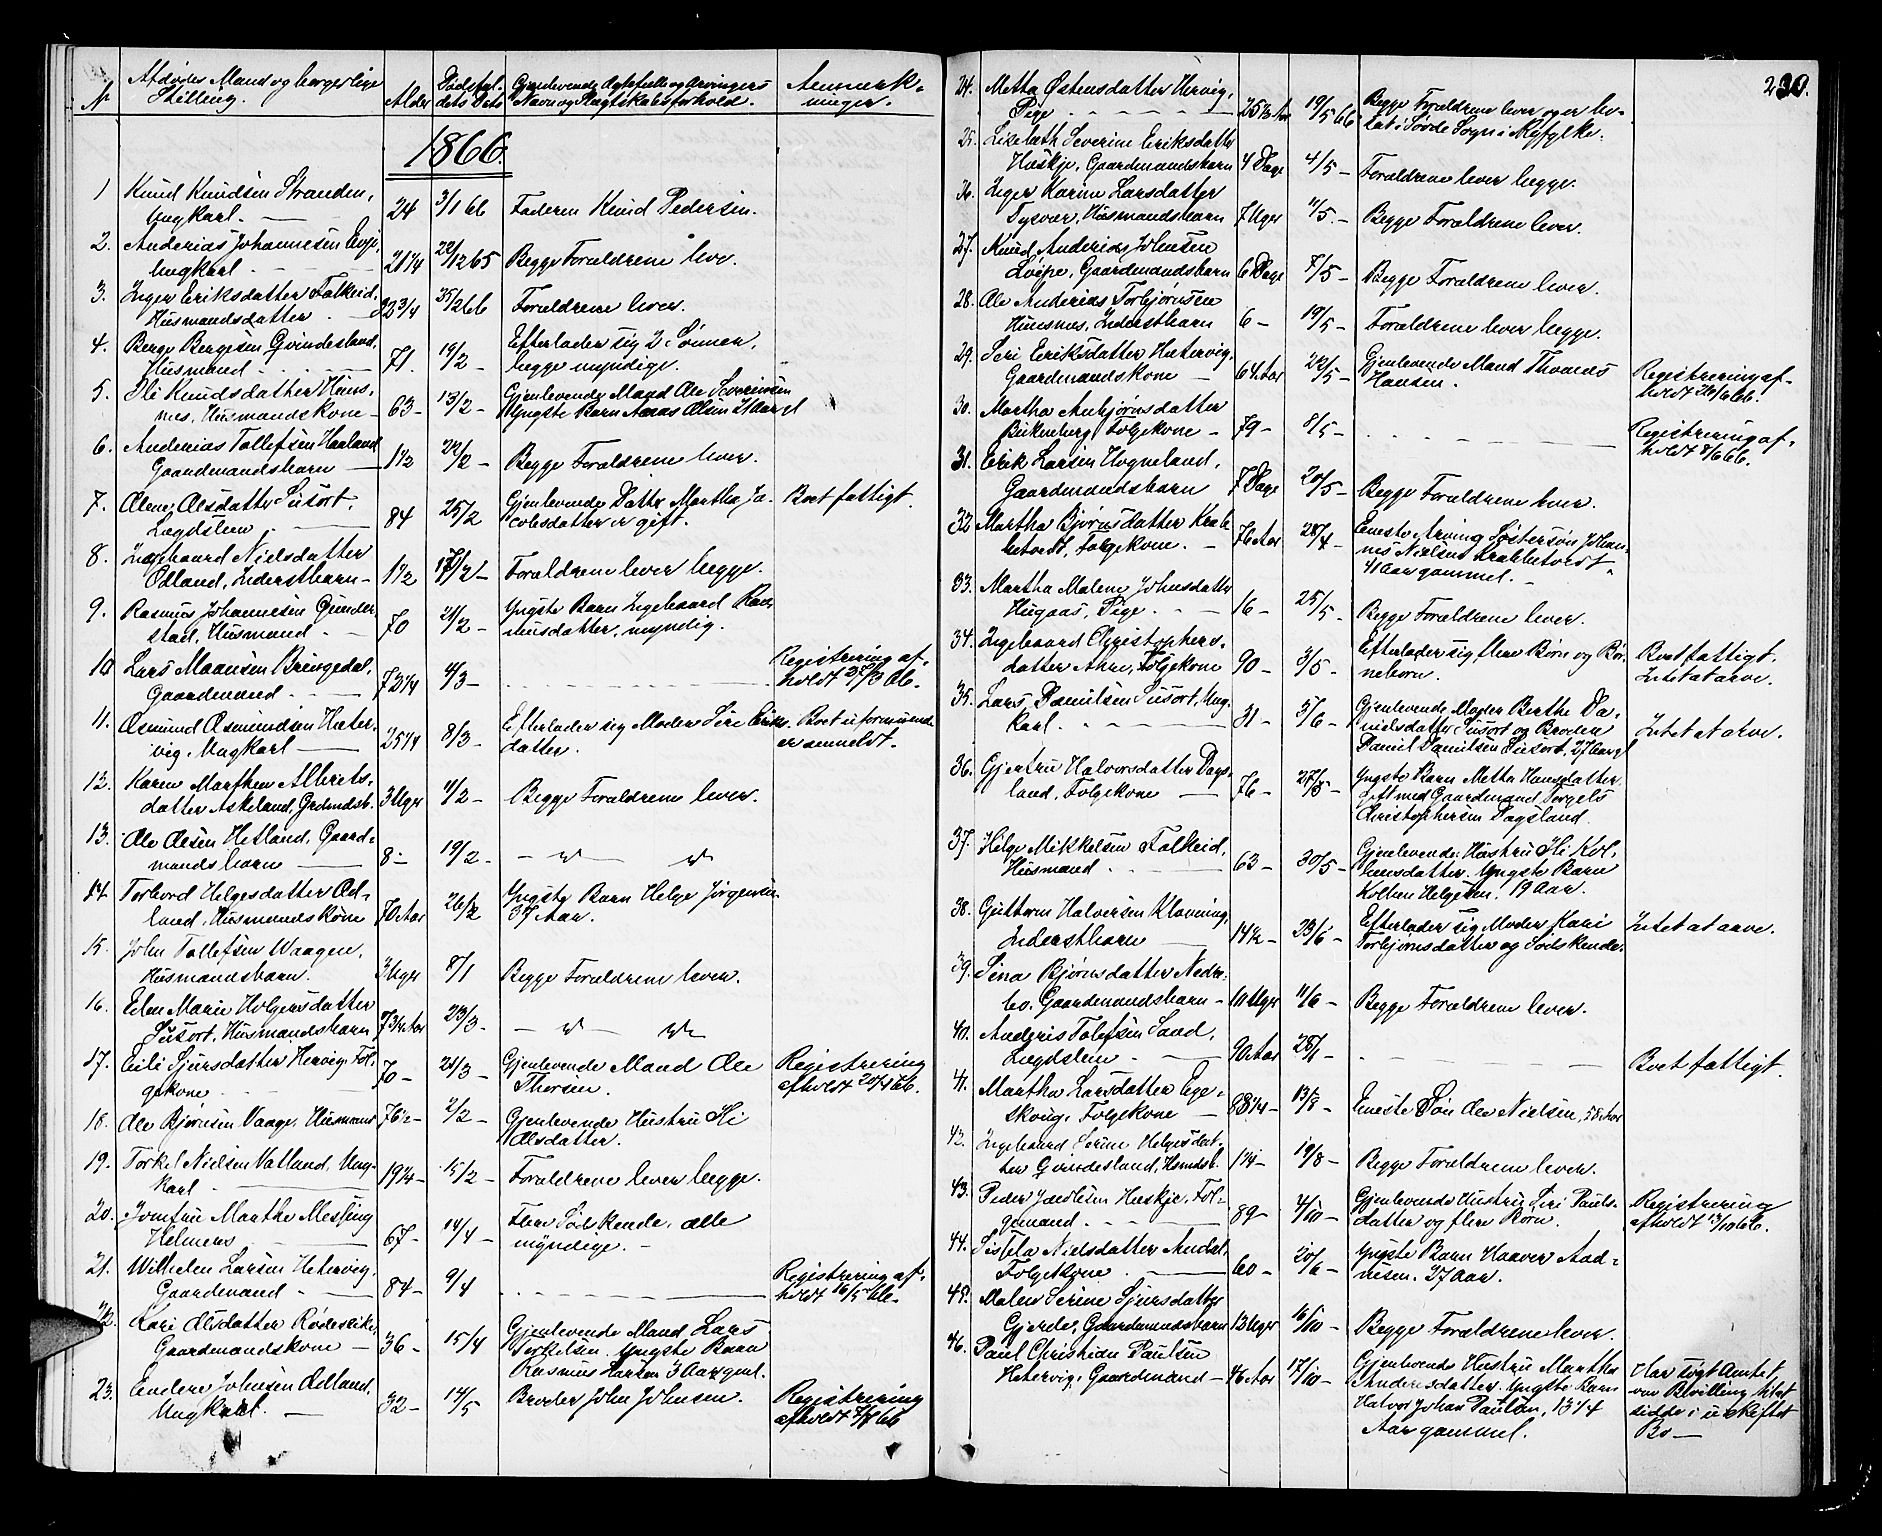 230.
№ Afdødes Navn og borgerlige Stilling. Alder Dødsfaldets Dato Gjenlevende Ægtefælle og Arvingers Navn og Slægtskabsforhold. Anmerkninger.
1866
1 Knud Knudsen Stranden,
Ungkarl. 24 3/1 66 Faderen Knud Pedersen.
2. Anderias Johannesen
Ungkarl 21 1/4 22/12 65 Begge Forældrene lever.
3. Inger Eriksdatter Falkeid,
Husmandsdatter 22 3/4 Forældrene lever.
4. Berge Bergesen Gvindesland,
Husmand 71. 19/2 - Efterlader sig 2 Sønner,
begge myndige.
5. Ili Knudsdatter Høns-
nes, Husmandskone - 63 - 13/2 - Gjenlevende Mand Ole Severinsen
Yngste Barn Aanas Olsen 21 Aar gl
6. Anderias Tollefsen Haaland
Gaardmandsbarn 1 1/2 22/2 - Begge Forældrene lever.
7. Olene Olsdatter Susort,
Lægdslem 84 25/2 Gjenlevende Datter Martha Ja-
cobsdatter er gift. Boet fattigt.
8. Ingebaard Nielsdatter
Ødland, Inderstbarn - 1 1/2 Forældrene lever begge.
9. Rasmus Johannesen Gunder-
stad, Husmand. 70 21/2 - Yngste Barn Ingebaard Ras-
musdatter, myndig.
10 Lars Maansen Breivgedal,
Gaardmand 72 1/4 4/3 - Registrering af-
holdt 27/3 66.
11. Osmund Osmundsen Heter-
vig, Ungkarl 25 1/4 8/3 - Efterlader sig Moder Siri Eriks-
datter. Boet uformuende
er anmeldt.
12. Karen Marthea Albrets-
datter Askeland, Grdmdsb. 3 Uger 11/2 - Begge Forældrene lever.
13. Ole Olsen Hetland, Gaard-
mandsbarn 8 - 19/2 -
14. Torbord Helgesdatter Od-
land, Husmandskone 70 Aar 26/2 Yngste Barn Helge Jørgensen
37 Aar.
15. John Tollefsen Waagen,
Husmandsbarn. 3 Uger 8/1 Begge Forældrene lever.
16. Edne Marie Holgersdatter
Susort, Husmandsbarn 7 3/4 Aar 23/3 -
17. Eili Sjursdatter Hervig, Fol-
gekone 70 - 21/3 - Gjenlevende Mand Ole
Thorsen. Registrering
afholdt 20/4 66.
18. Ole Bjørnsen Vaage, Husmand 76 1/2 - 2/2 - Gjenlevende Hustru Ili
Olsdatter.
19. Torkel Nielsen Vatland, Ung-
karl 19 1/4 - 15/2 - Forældrene lever begge.
20. Jomfru Marthe Messing
Helmers 67 - 14/4 - Flere Sødskende, alle
myndige. -
21. Wilhelm Larsen Hetervig,
Gaardmand 84 - 9/4 Registrering af-
holdt 16/5 66.
22. Kari Olsdatter Rødeslike,
Gaardmandskone - 36 - 15/4 Gjenlevende Mand Lars
Torkelsen. Yngste Barn
Rasmus Larsen 3 Aar gml.
23. Endre Johnsen Odland,
Ungkarl. 32 - 14/5 Broder John Johnsen. Registrering
afholdt 66
24. Metha Østensdatter Hervig,
Pige 25 1/2 Aar 19/5 66 Begge Forældrene lever og er bo-
sat i Søvde Sogn i Ryfylke.
25. Lisebeth Severine Eriksdatter
Heskje, Gaardmandsbarn 4 Dage 4/5 - Forældrene lever begge.
26. Inger Karine Larsdatter
Tysvær, Husmandsbarn 7 Uger 11/5. - Begge Forældrene lever.
27. Knud Anderias Johnsen
Gaardmandsbarn 6 Dage 7/5 - Begge Forældrene lever.
28. Ole Anderias Torbjørnsen
Hunsnes, Inderstbarn 6 - 19/5 - Forældrene lever begge.
29. Siri Eriksdatter Hetervig,
Gaardmandskone 64 Aar 22/5 - Gjenlevende Mand
Hansen. Registrering af-
holdt 26/6 66.
30. Martha Anbjørnsdatter
Birkeberg, Folgekone - 79 - 8/5 - Registrering af-
holdt 8/6 66.
31. Erik Larsen Hogneland,
Gaardmandsbarn 7 Dage 20/5 - Begge Forældrene lever.
32 Martha Bjørnsdatter Krab-
betvedt, Folgekone. - 76 Aar 28/4 - Eneste Arving Søstersøn Johan-
nes Nielsen Krabbetvedt
41 Aar gammel.
33. Martha Malene Johnsdatter
Hugaas, Pige. 16 - 25/5 - Begge Forældrene lever.
34. Ingebaard Christophers-
datter Folgekone 90 - 3/5 - Efterlader sig flere Børn og Bør-
nebørn. Boet fattigt.
Intet at arve.
35. Lars Danielsen Susort, Ung-
karl 31 - 5/6 - Gjenlevende Moder Berthe Da-
nielsdatter Susort og Broder
Daniel Danielsen Susort, 27 Aar gl Intet at arve.
36. Gjertru Halvorsdatter Dags-
land, Folgekone 76 - 27/5 - Yngste Barn Metha Hansdatter
gift med Gaardmand Torgels
Christophersen Dagsland.
37. Helge Mikkelsen Falkeid,
Husmand 63 - 30/5 - Gjenlevende Hustru Ili Kol-
bensdatter. Yngste Barn
Kolben Helgesen. 19 Aar.
38. Guttorm Halvorsen Kloveving,
Inderstbarn 14 1/2 - 23/6 - Efterlader sig Moder Kari
Torbjørnsdatter og Sødskende. Intet at arve.
39. Sina Bjørnsdatter Nedre-
bo, Gaardmandsbarn - 10 Uger 11/6 - Begge Forældrene lever.
40. Anderis Tolefsen Sand,
Lægdslem 90 Aar Boet fattigt.
41. Martha Larsdatter Ege-
skoug, Folgekone 88 1/4 - 13/8 - Eneste Søn Ole Nielsen, 58 Aar
42. Ingebaard Serine Helgesdat-
ter Gvindesland, Hsmdsb. 1 1/4 - 19/8 - Begge Forældrene lever.
43. Peder Jacobsen Heskje, Fol-
gemand 89 - 4/10 - Gjenlevende Hustru Siri Pauls-
datter og flere Børn. Registrering
afholdt 13/10 66.
44. Sissela Nielsdatter Andal,
Folgekone 60 - 20/6 - Yngste Barn Haaver Aad-
nesen. 27 Aar.
45. Malen Serine Sjursdatter
Gjerde, Gaardmandsbarn 13 Uger 16/10 - Begge Forældrene lever.
46. Paul Christian Paulsen
Hetervig, Gaardmand - 46 Aar 17/10 - Gjenlevende Hustru Martha
Andersdatter. Yngste Barn
Halvor Johan Paulsen, 13 1/4
Aar gammel. Har søgt Amtet,
om Bevilling til at
sidde i uskiftet
Bo -